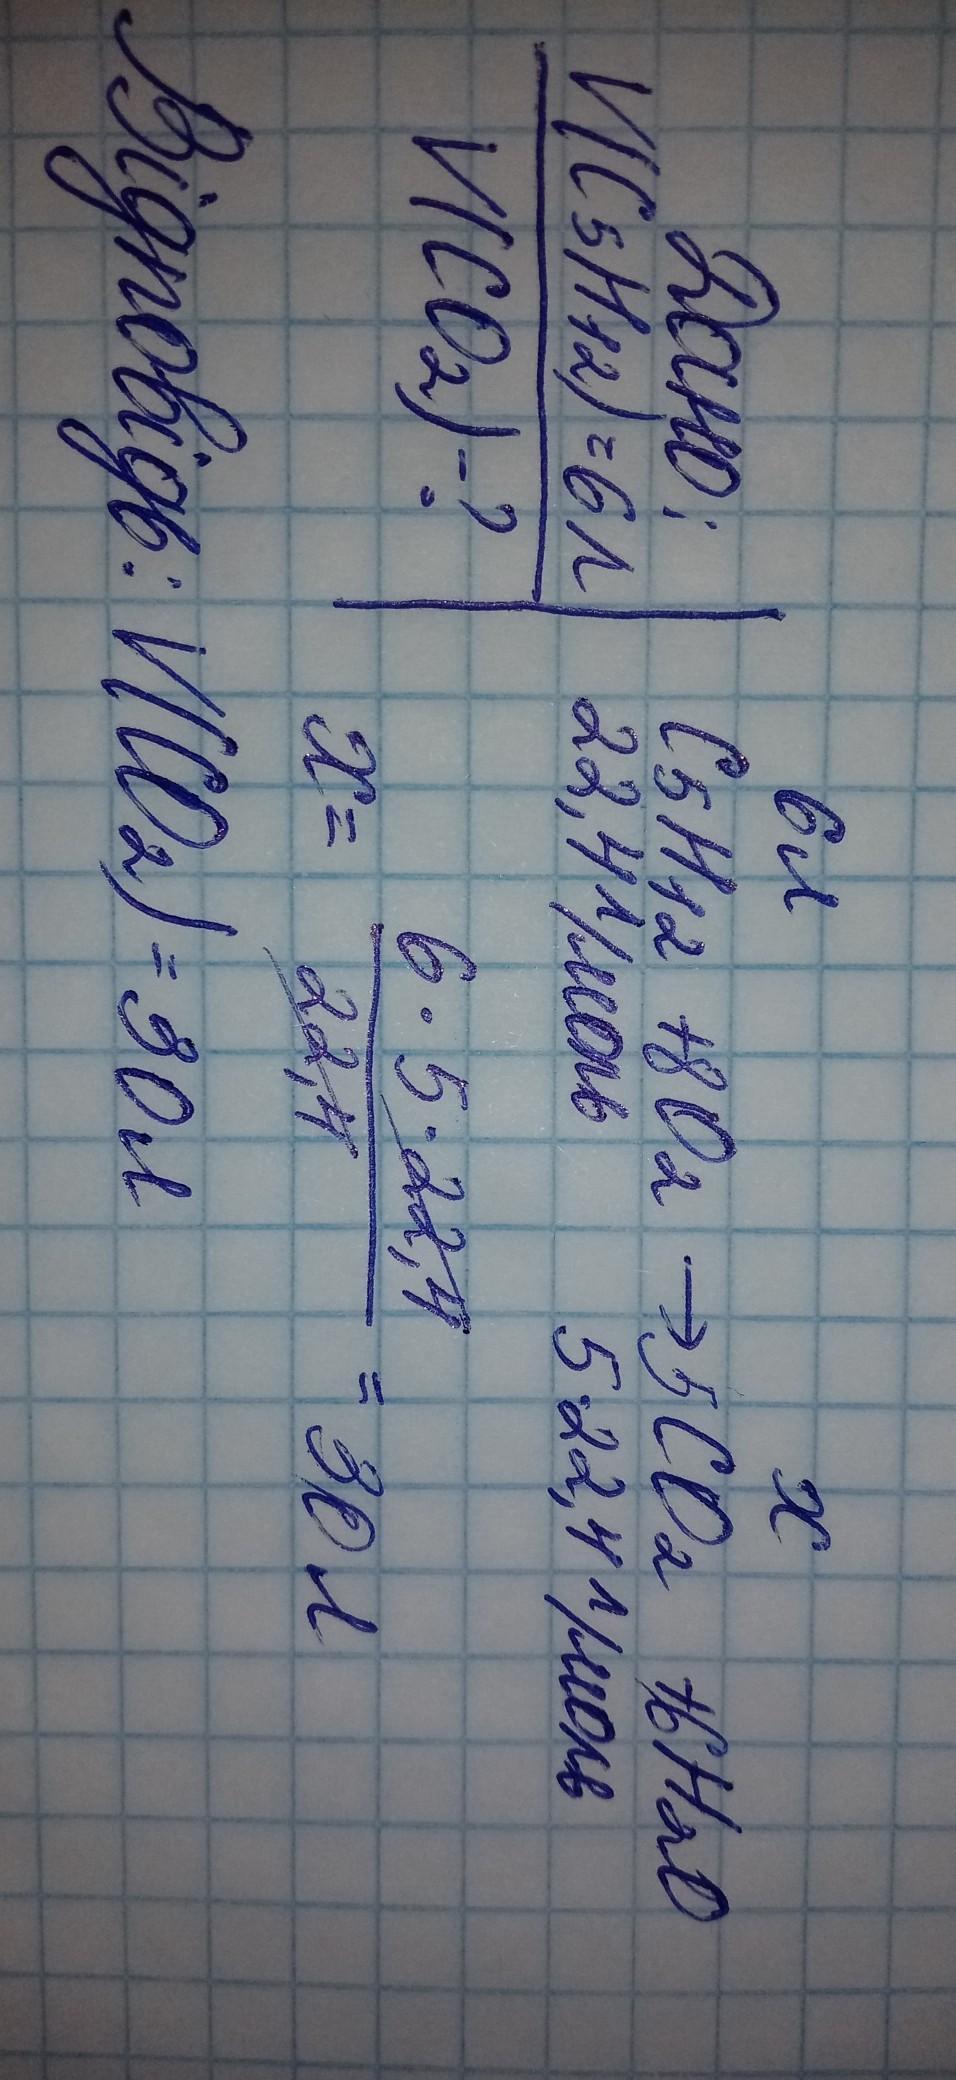 Дано:
V(C5H12)=6л
V(CO2)-?
6л x
C5H12 +8O2 →5CO2 +6H2O
22,4л/моль 5·22,4л/моль
x= 6·5·22,4 / 22,4 = 30л
Відповідь: V(CO2)=30л